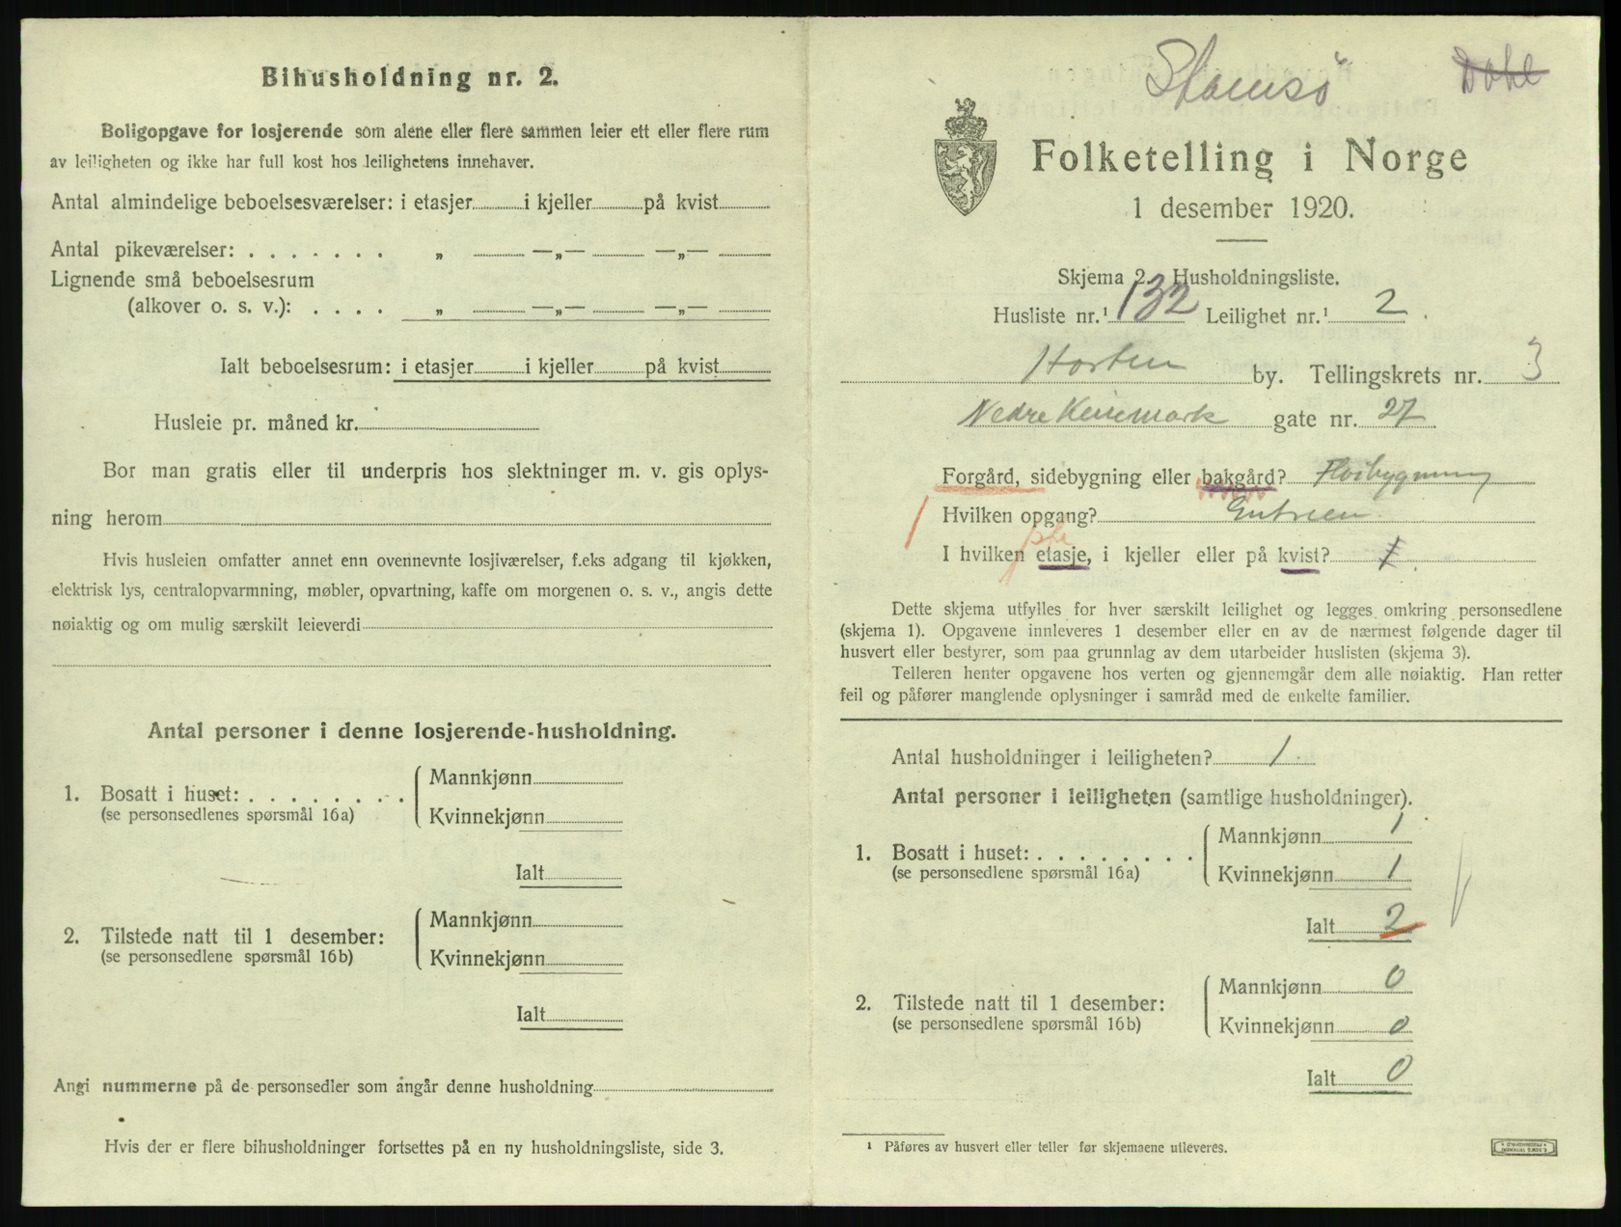 Bihusholdning nr. 2.
Boligopgave for losjerende som alene eller flere sammen leier ett eller flere rum
av leiligheten og ikke har full kost hos leilighetens innehaver.
Antal almindelige beboelsesværelser: i etasjer i kjeller på kvist
Antal pikeværelser: . . . . . . . „ —„— —„—
Lignende små beboelsesrum
(alkover o. s. v.): . . . . „ —„— —„—
Ialt beboelsesrum: i etasjer i kjeller på kvist
Husleie pr. måned kr.
Bor man gratis eller til underpris hos slektninger m. v. gis oplys-
ning herom
Hvis husleien omfatter annet enn ovennevnte losjiværelser, f.eks adgang til kjøkken,
elektrisk lys, centralopvarmning, møbler, opvartning, kaffe om morgenen o. s. v., angis dette
nøiaktig og om mulig særskilt leieverdi
Antal personer i denne losjerende-husholdning.
1. Bosatt i huset: . . . . . . . .
(se personsedlenes spørsmål 16a)
Mannkjønn
Kvinnekjønn
Ialt
2. Tilstede natt til 1 desember:
(se personsedlene spørsmål 16b)
Mannkjønn
Kvinnekjønn
Ialt
Angi nummerne på de personsedler som angår denne husholdning
Hvis der er flere bihusholdninger fortsettes på en ny husholdningsliste, side 3.
Stamsö Dahl
Folketelling i Norge
1 desember 1920.
Skjema 2. Husholdningsliste.
Husliste nr.¹ 132 Leilighet nr.¹ 2
Horten by. Tellingskrets nr. 3
Nedre Keisemark gate nr. 27
Forgård, sidebygning eller bakgård? Fløibygning
Hvilken opgang? Entreen
I hvilken etasje, i kjeller eller på kvist? 1
Dette skjema utfylles for hver særskilt leilighet og legges omkring personsedlene
(skjema 1). Opgavene innleveres 1 desember eller en av de nærmest følgende dager til
husvert eller bestyrer, som paa grunnlag av dem utarbeider huslisten (skjema 3).
Telleren henter opgavene hos verten og gjennemgår dem alle nøiaktig. Han retter
feil og påfører manglende oplysninger i samråd med de enkelte familier.
Antal husholdninger i leiligheten? 1
Antal personer i leiligheten (samtlige husholdninger).
1. Bosatt i huset: . . . . . . . .
(se personsedlene spørsmål 16a)
Mannkjønn 1
Kvinnekjønn 1
Ialt 2
2. Tilstede natt til 1 desember:
(se personsedlene spørsmål 16b)
Mannkjønn 0
Kvinnekjønn 0
Ialt 0
¹ Påføres av husvert eller teller før skjemaene utleveres.